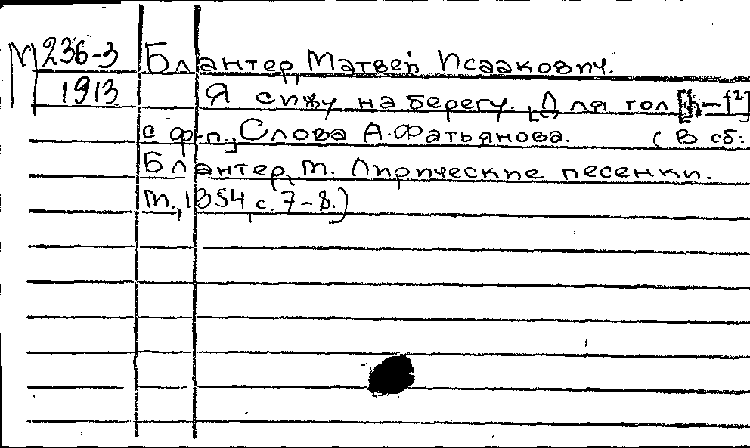 М 236-3 Блантер, Матвей Исаакович.
1913 Я сижу на берегу. [Для гол
с ф-п.] Слова А. Фатьянова. (В сб:
Блантер, М. Лирические песенки.
М., 1954, с. 7-8.)